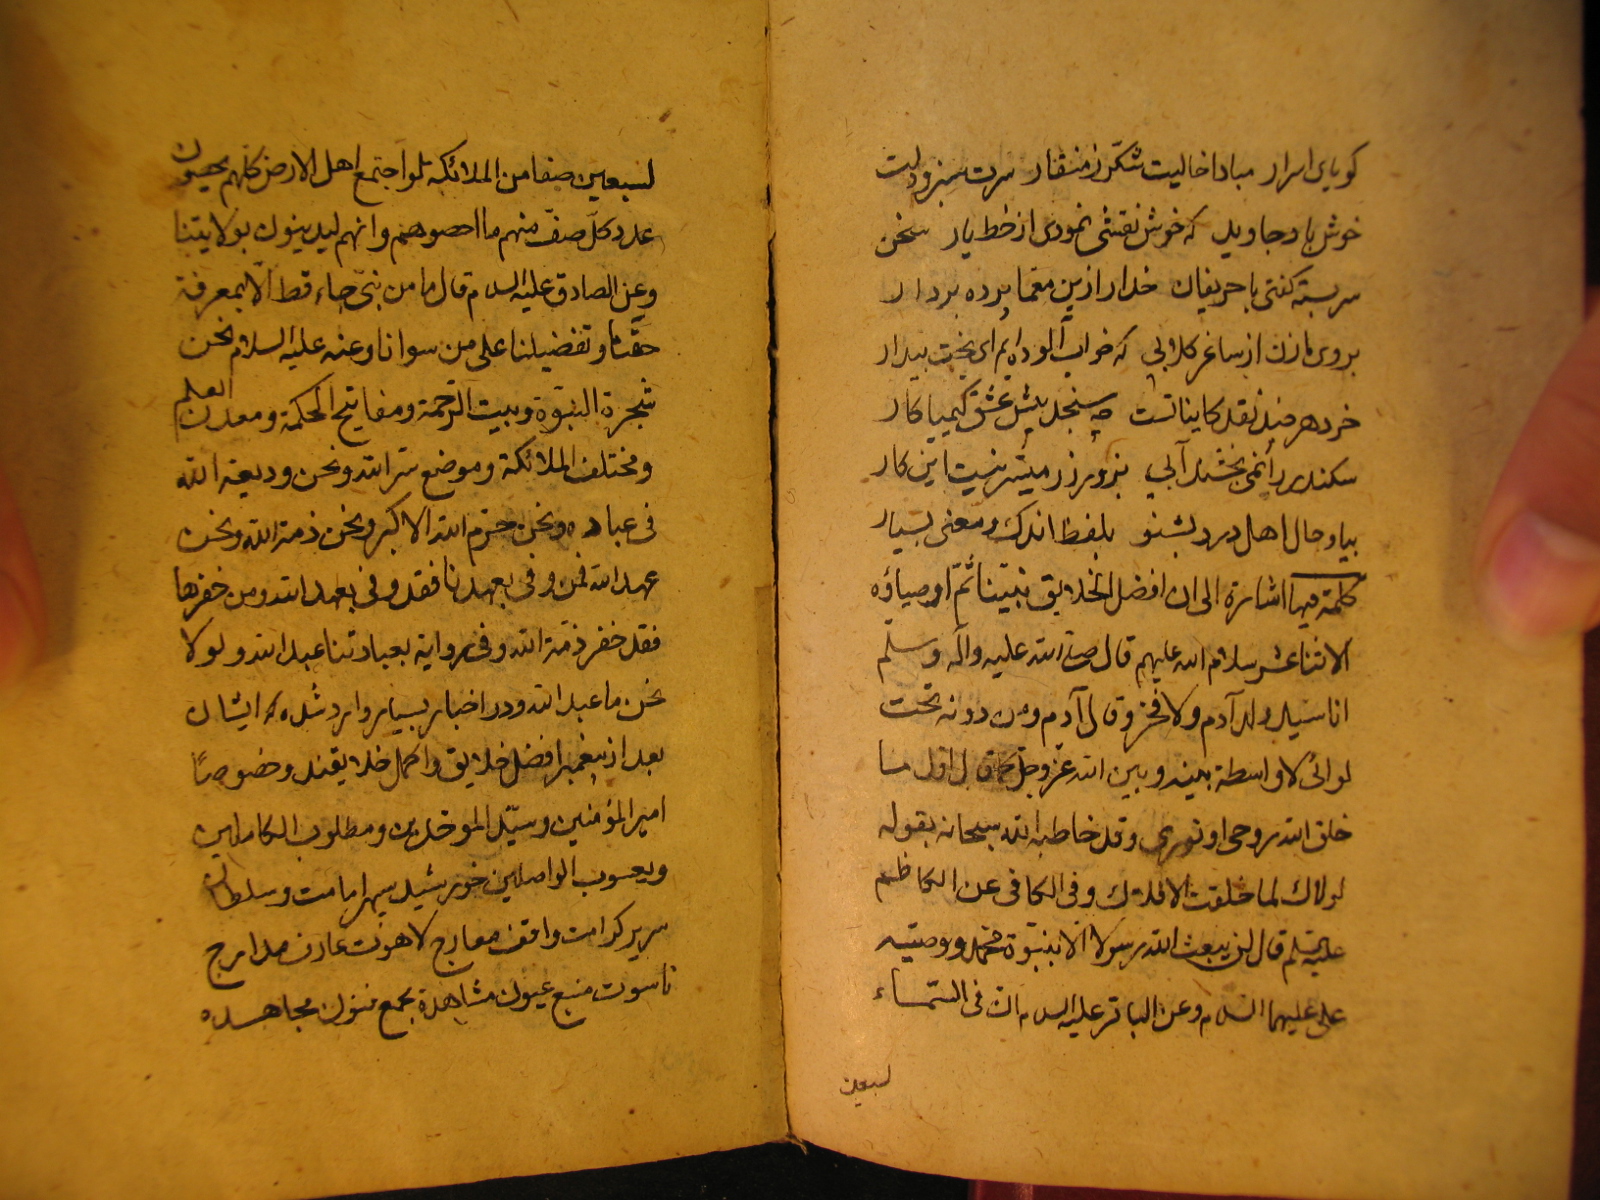 گویای اسرار مبادا خالیت شکر ز منقار سرت سبز و دلت
خوش باد جاوید که خوش نقشی نمودی از خط یار سخن
سربسته گفتی با حریفان خدا را زین معما پرده بردار
بروی ما زن از ساغر گلابی که خواب آلوده ایم ای بخت بیدار
خرد هر چند نقد کایناتست چه سنجد پیش عشق کیمیا کار
سکندر را نمی بخشند آبی بزور و زر میسر نیست این کار
بیا و حال اهل درد بشنو بلفظ اندک و معنی بسیار
کلمة فیها اشارة الی ان افضل الخلایق نبیّنا ثمّ اوصیاؤه
الاثنا عشر سلام الله علیهم قال صلی الله علیه وآله وسلّم
انا سید ولد آدم ولا فخر وقال آدم ومن دونه تحت
لوائی لا واسطة بینه وبین الله عزوجل قال اول ما
خلق الله روحی او نوری وقد خاطبه الله سبحانه بقوله
لولاك لما خلقت الافلاك وفی الکافی عن الکاظم
علیه قال لن یبعث الله رسولا الا بنبوّة محمّد ووصیّه
علی علیهما السلام وعن الباقر علیه السلام ان فی السّماء
لسبعین
لسبعین صفا من الملائکة لو اجتمع اهل الارض کلهم یحصون
عدد کلّ صفّ منهم ما احصوهم وانهم لیدینون بولایتنا
وعن الصادق علیه السلام قال ما من نبیّ جاء قط الّا بمعرفة
حقّنا وتفضیلنا علی من سوانا وعنه علیه السلام نحن
شجرة النبوّة وبیت الرّحمة ومفاتیح الحکمة ومعدن العلم
ومختلف الملائکة وموضع سرّ الله ونحن ودیعة الله
فی عباده ونحن حرم الله الاکبر ونحن ذمة الله ونحن
عهد الله فمن وفی بعهدنا فقد وفی بعهد الله ومن خفرها
فقد خفر ذمّة الله وفی روایة بعبادتنا عبد الله ولولا
نحن ما عبد الله ودر اخبار بسیار وارد شده که ایشان
بعد از پیغمبر افضل خلایق واکمل خلایقند وخصوصاً
امیر المؤمنین وسیّد الموحدین ومطلوب الکاملین
ویعسوب الواصلین خورشید سپهر امامت وسلطان
سریر کرامت واقف معارج لاهوت عارف مدارج
ناسوت منبع عیون مشاهدة مجمع فنون مجاهده